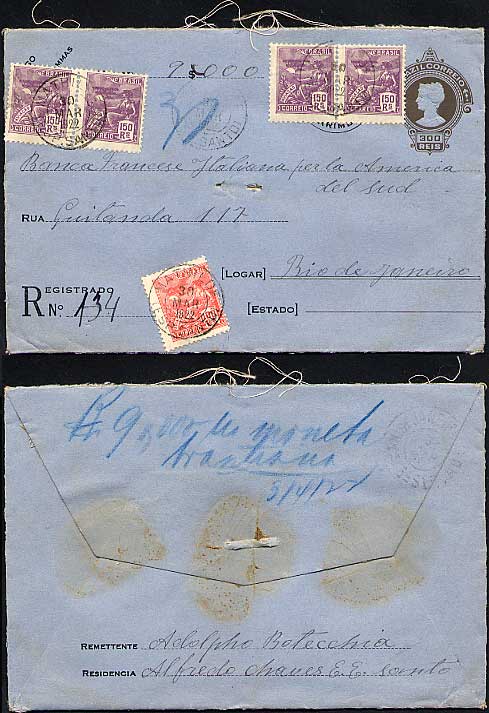 MINAS
9$000
BRASIL
BRASIL
CORREIO 150 RÉIS
CORREIO 150 RÉIS
30 MAR 1922
BRASIL
BRASIL
CORREIO 150 RS
CORREIO 150 RS
300 REIS
Banca Francese Italiana per la America
del Sud
RUA Quitanda 117
[LOGAR] Rio de Janeiro
REGISTRADO
R No. 134
[ESTADO]
30 MAR 1922
R 9,000 in moneta
brasiliana
3/4/22
REMETTENTE Adolpho Botecchia
RESIDENCIA Alfredo Chaves E. E. Santo